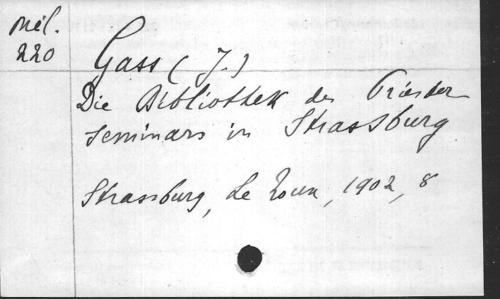 Mél.
220
Gass (J.)
Die Bibliothek des Priester
seminars in Strassburg
Strassburg, Le Roux, 1902, 8